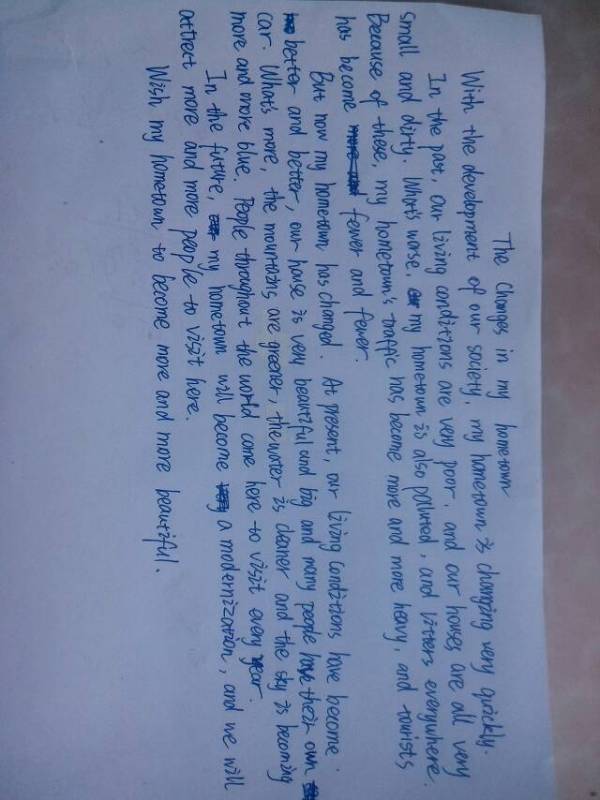 The Changes in my hometown
With the development of our society, my hometown is changing very quickly.
In the past, our living conditions are very poor, and our houses are all very
small and dirty. What's worse, my hometown is also polluted, and litters everywhere.
Because of these, my hometown's traffic has become more and more heavy, and tourists
has become fewer and fewer.
But now my hometown has changed. At present, our living conditions have become
better and better, our house is very beautiful and big and many people have their own
car. What's more, the mountains are greener, the water is cleaner and the sky is becoming
more and more blue. People throughout the world come here to visit every year.
In the future, my hometown will become a modernization, and we will
attract more and more people to visit here.
Wish my hometown to become more and more beautiful.